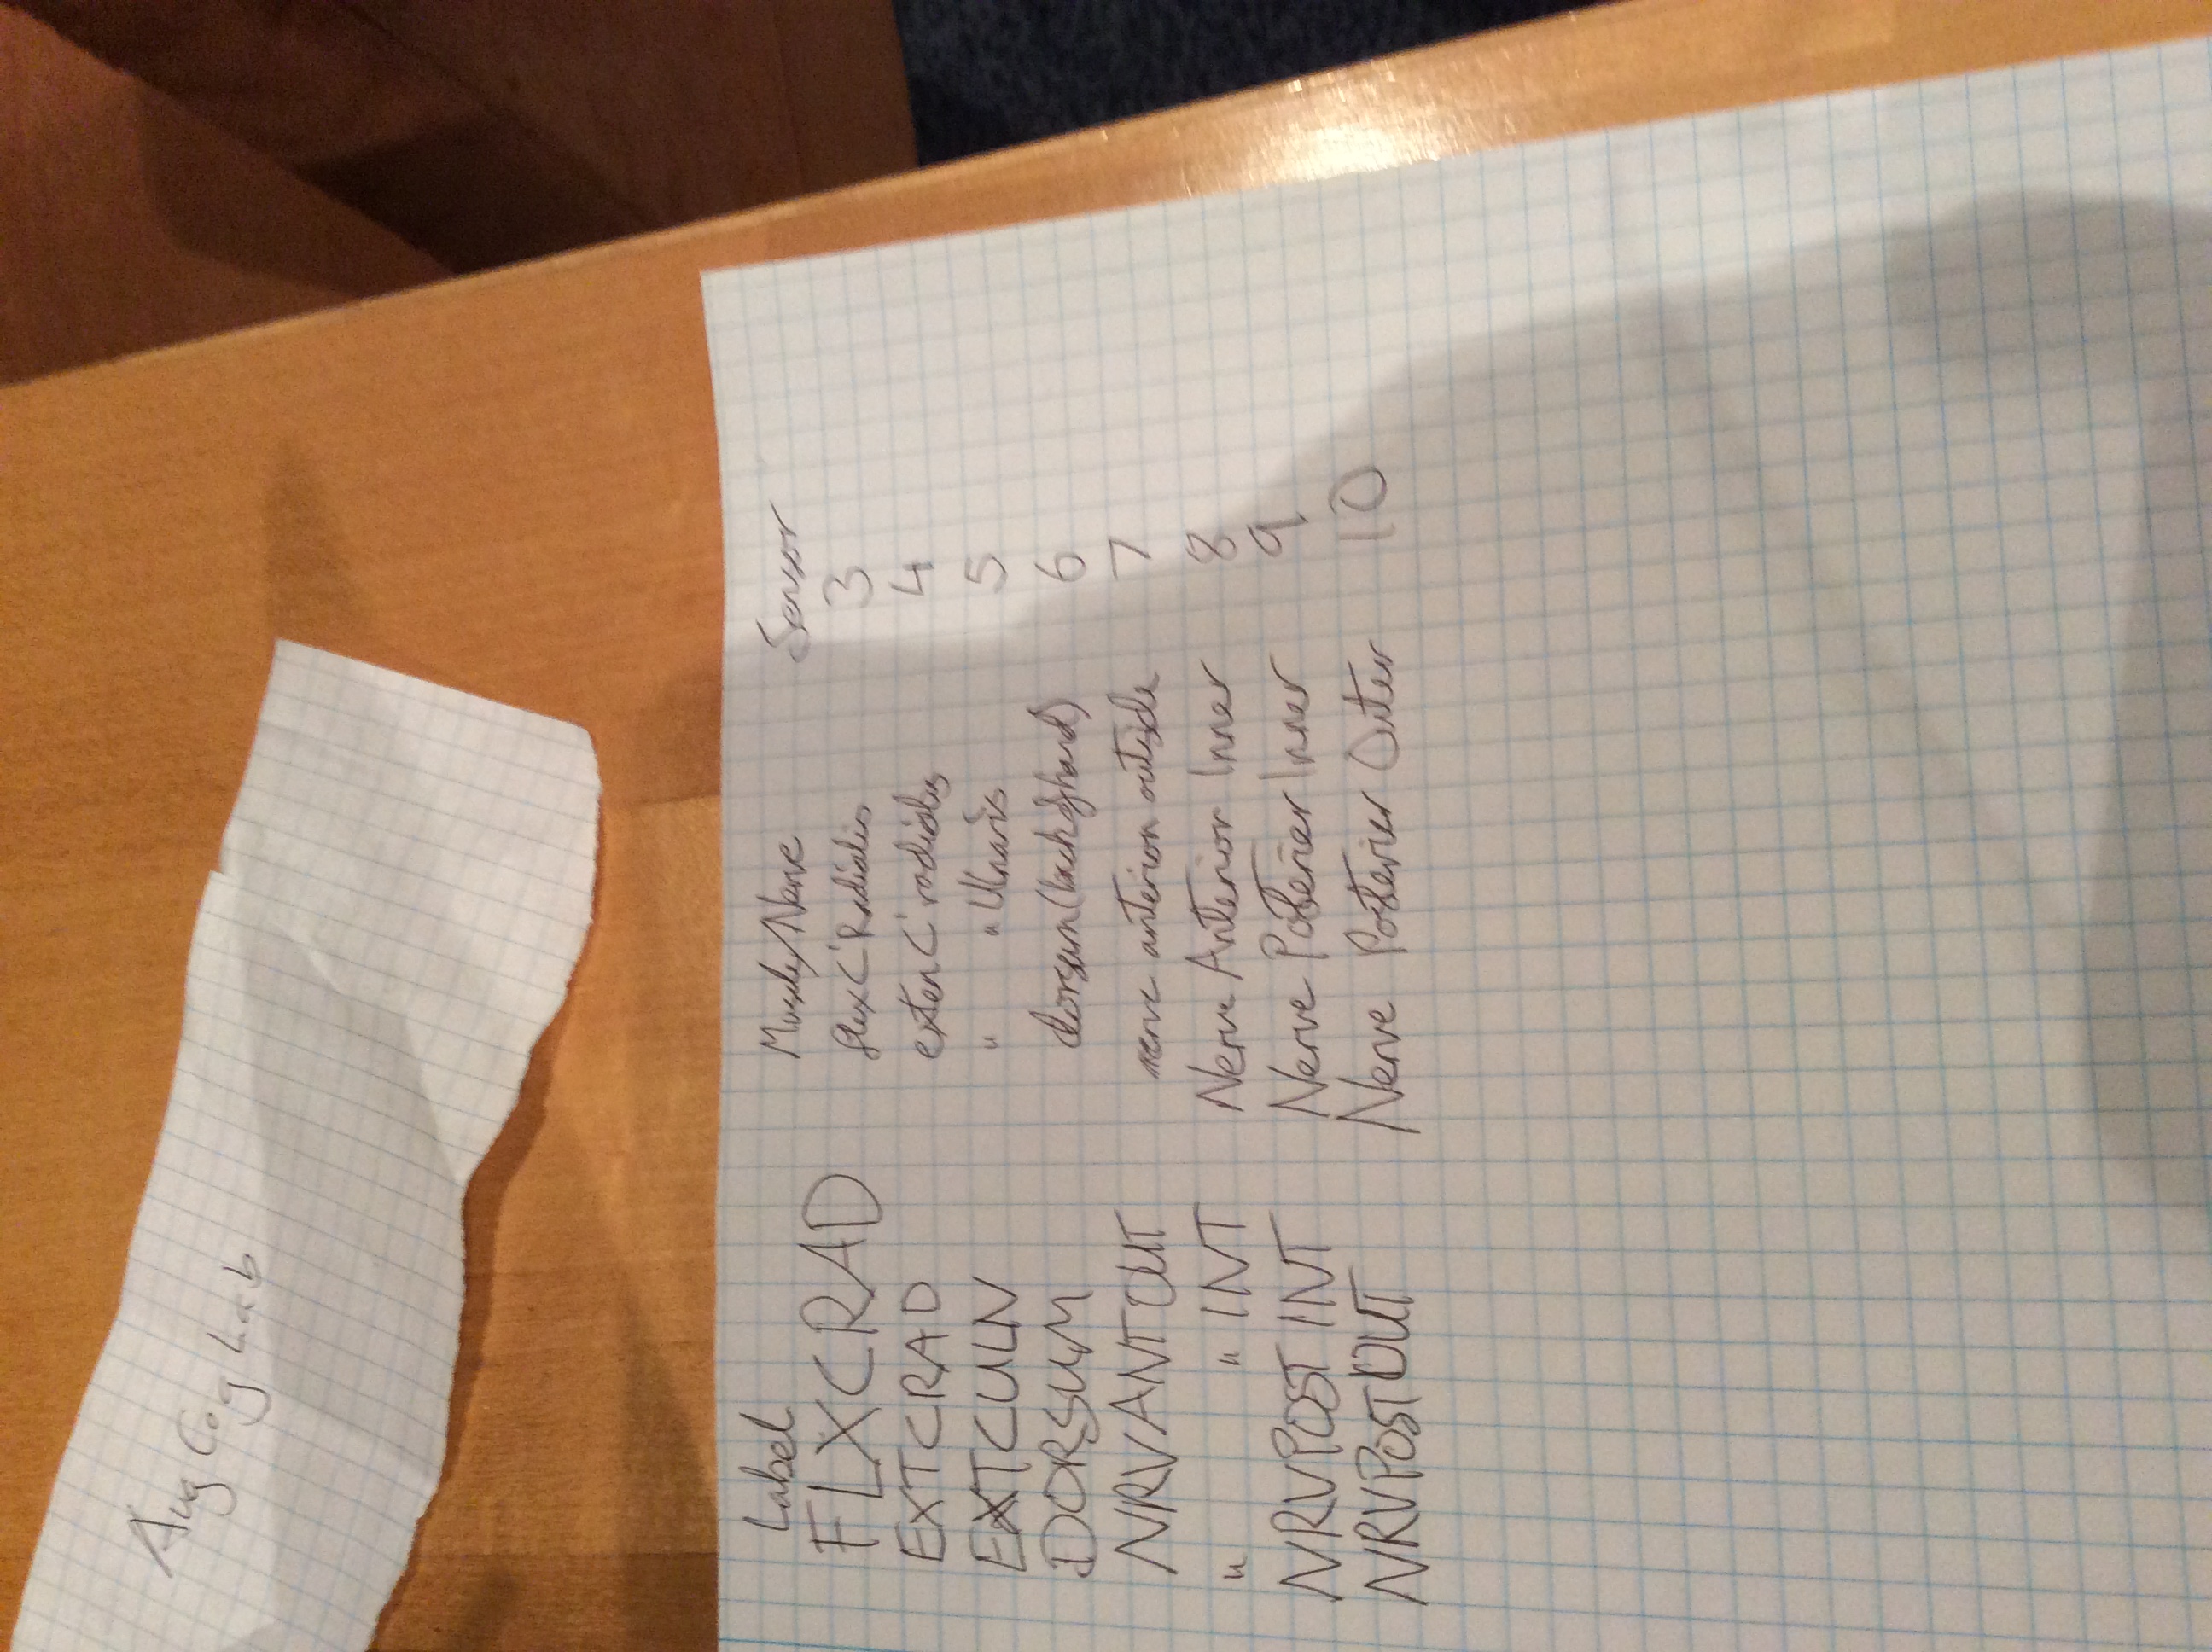 Aug Cog Lab
Label Muscle/Nerve Sensor
FLXCRAD flex C' Radialis 3
EXTCRAD exten C' radialis 4
EXTCULN " " Ulnaris 5
DORSUM dorsum (back of hand) 6
NRVANTOUT nerve anterion outside 7
" " INT Nerve Anterior Inner 8
NRVPOST INT Nerve Posterier Inner 9
NRVPOSTOUT Nerve Posterier Outer 10